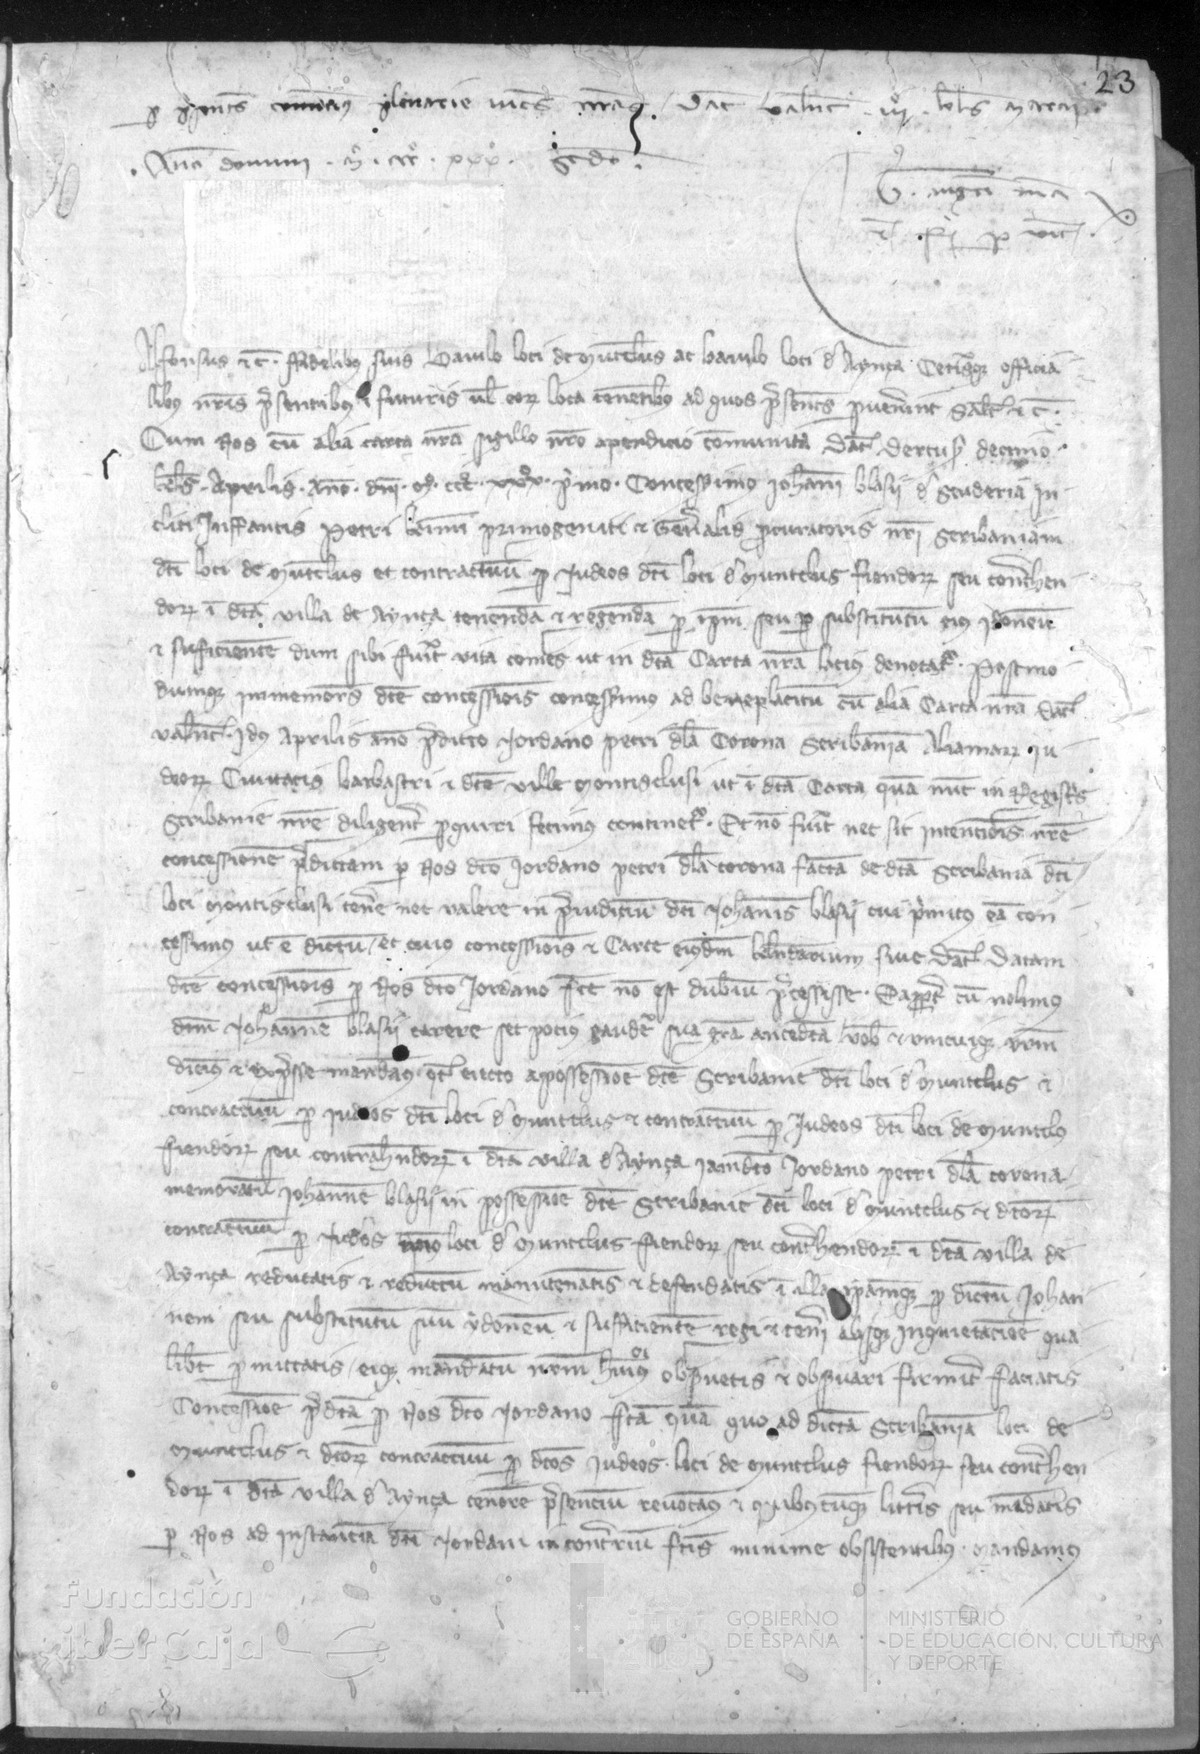 23
Dat Valnt
Ano domini . mº . cccº . xxxº . scdo .
Alfonsus etc . ffidelibus suis baiulo loci de muntclus ac baiulo loci d Aynça Ceterisque officia
libus nris presentibus et futuris vel eorum loca tenentibus ad quos presentes pervenerint Salt etc .
Cum Nos cum alia carta nra sigillo nro apendicio comunita Dat Dertuse decimo
kls . Aprilis . Ano . dni . mº . cccº . xxxº . primo . Concessimo Johani blasii d scuderia In
cliti Infantis Petri krmi primogeniti et generalis procuratoris nri scribaniam
dti loci de muntclus et contractuum per Judeos dti loci d muntclus fiendor seu contrhen
dor i dta villa de Aynça tenenda et regenda per ipm seu per substitutum eius ydoneum
et sufficientem dum sibi fuerit vita comes ut in dta Carta nra lacius denotatur . Postmo
dumque inmemores dte concessionis concessimo ad beneplacitum cum alia Carta nra Dat
Valnt . Idus Aprilis ano predicto Jordano petri dla Corona Scribania Aliamar Iu
deor Civitatis barbastri et dte ville montisclusi ut i dta Carta quam nunc in Registris
scribanie nre diligenter perquiri fecimus continetur . Et no fuit nec sit intencionis nre
concessionem predictam per Nos dto Jordano petri dla corona factam de dta scribania dti
loci montisclusi tenere nec valere in preiudicium dti Johannis blasii cui primitus eam con
cessimus ut e dictum et cuius concessionis et Carte eiusdem kalendarium sive Dat Datam
dte concessionis per Nos dto Jordano fte no est dubium precessisse . Eapropter cum nolimus
dtum Johannem blasii carere set pocius gaudere sua gra antedta vob et unicuique vrm
dicimus et expresse mandamus qt eiecto a possessione dte scribanie dti loci d muntclus et
contractuum per Judeos dti loci d muntclus et contractuum per Judeos dti loci de muntclus
fiendor seu contrahendor i dta villa d Aynça iamdto Jordano petri dla corona
memoratum Johannem blasii in possessione dte scribanie dti loci d muntclus et dtor
contractuum per Judeos loci d muntclus fiendor seu contrhendor i dta villa de
Aynça reducatis et reductum manuteneatis et defendatis i illa ipamque per dictum Johan
nem seu substitutum suum ydoneum et sufficientem regi et teneri absque inquietacione qua
libet permittatis eique mandatum nrm huiusmodi observetis et observari firmiter faciatis
Concessione predta per Nos dto Jordano fta quam quo ad dictam Scribaniam loci de
muntclus et dtor contractuum per dtos Judeos loci de muntclus fiendor seu contrhen
dor i dta villa d Aynça tenore presencium revocamus et quibuscumque litteris seu mandatis
per Nos ad instancia dti Jordani in contrarium ftis minime obsistentibus . mandamus
Fundación
iberCaja
GOBIERNO
DE ESPAÑA
MINISTERIO
DE EDUCACIÓN, CULTURA
Y DEPORTE